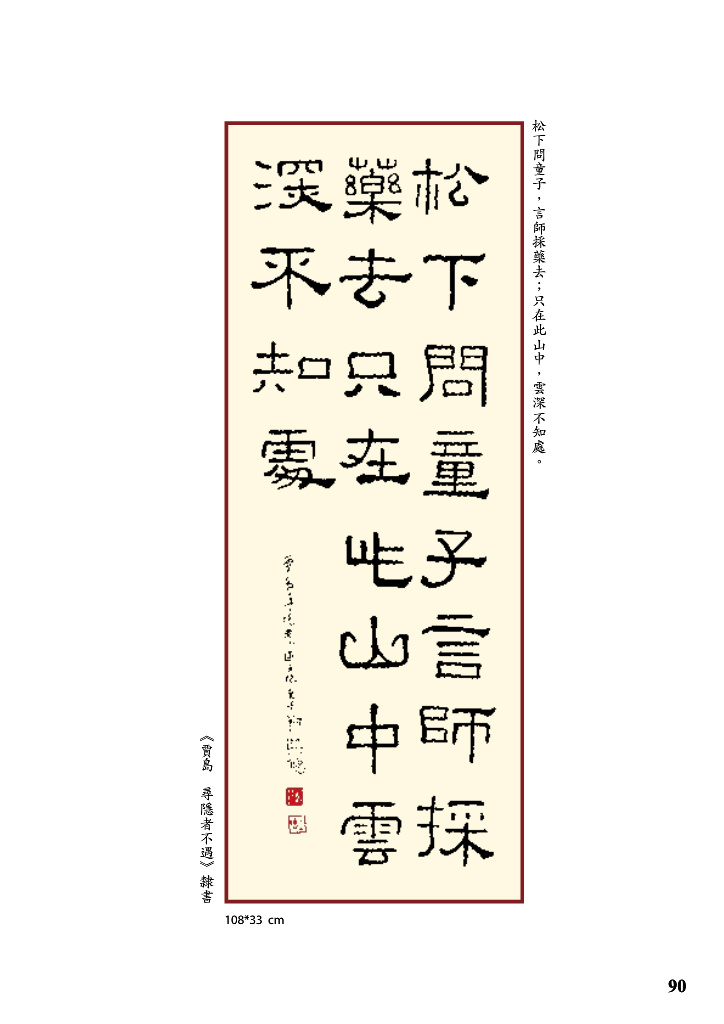 松下問童子，言師採藥去；只在此山中，雲深不知處。
松下問童子言師採
藥去只在此山中雲
深不知處
賈島尋隱者不遇
《賈島　尋隱者不遇》隸書
108*33 cm
90